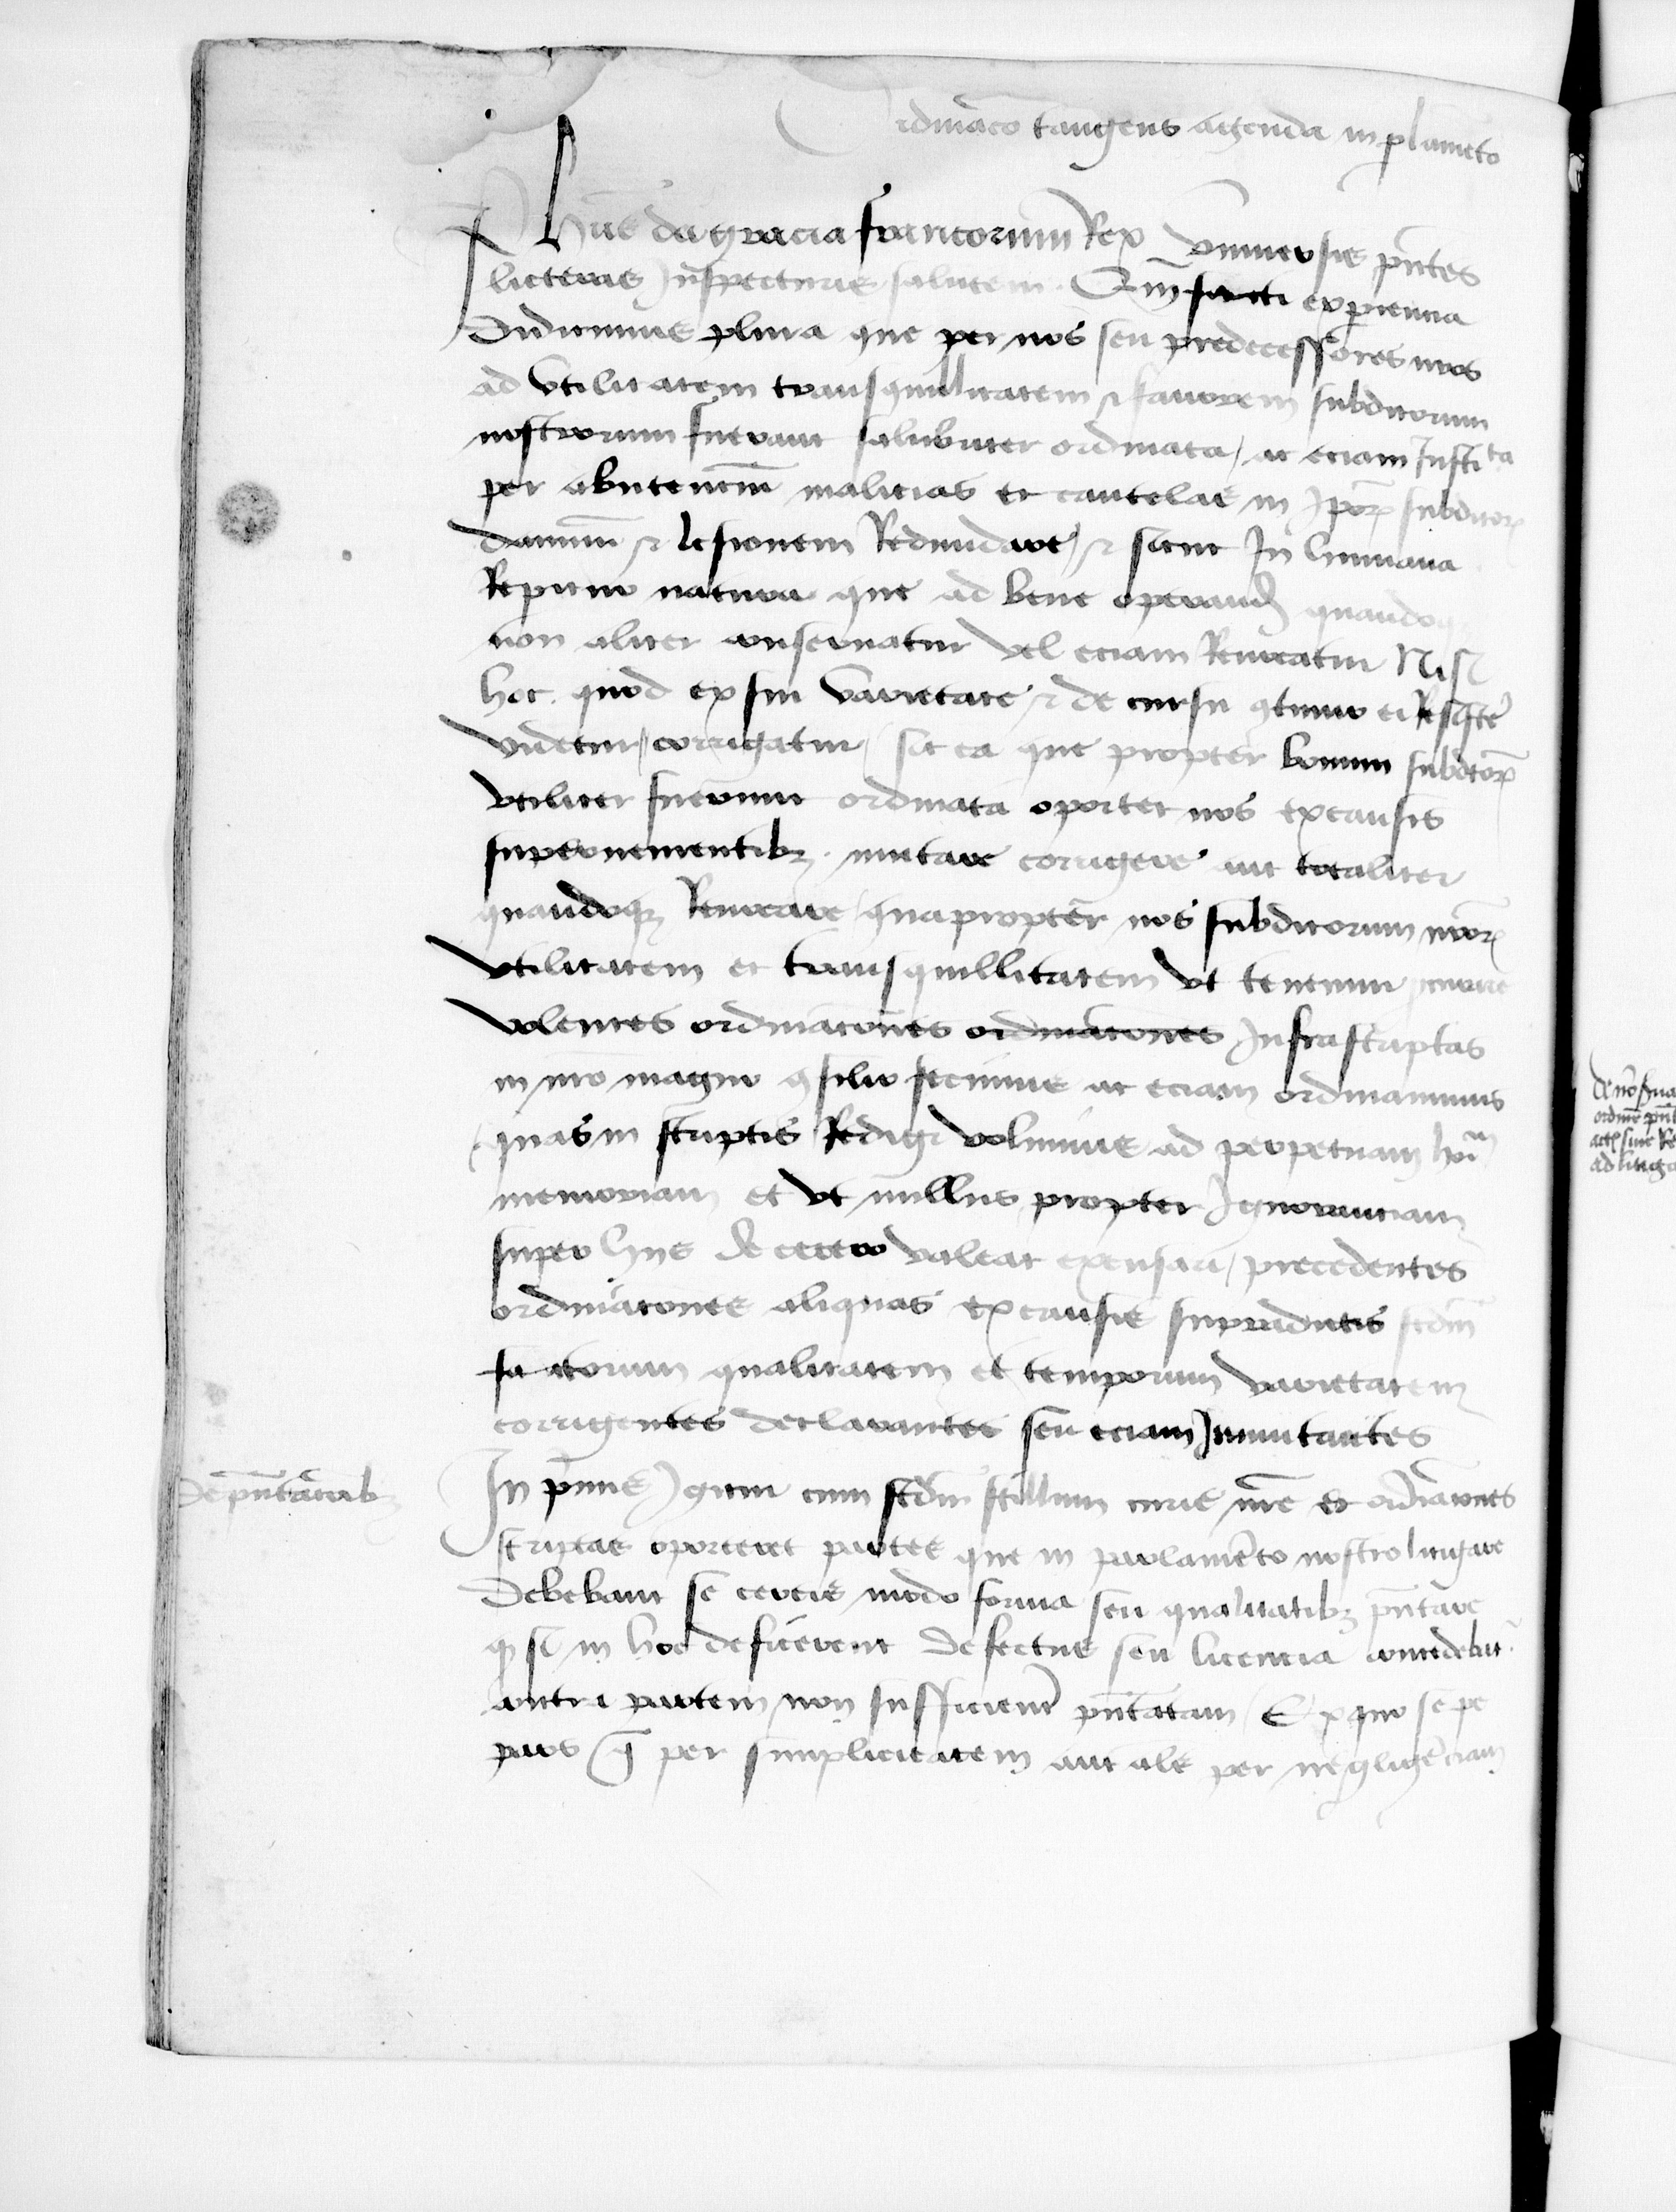 Ordinacõ tangens agenda in plameto
Phũs dei gracia francorum Rex Vniuersis pñtes
licteras Inspecturis salutem. Qm̃ facti experiencia
Didicimus plura que per nos seu predecessores nr̃os
ad vtilitatem transquillitatem & fauorem subditorum
nostrorum fuerant salubriter ordinata / ac eciam Instituta
per abutencium malicias et cautelas in Ipor̃ subditor̃
dampnũ & lesionem Redundare / & sicut In humana
Reperitur natura que ad bene operand̃ quandoq̃
non aliter conseruatur vel eciam Reuocatur Nisi
hoc quod ex sui varietate & de cursu 9tinuo ei Resistẽ
videtur / corrigatur / sic ea que propter bonum subdtor̃
vtiliter fuerunt ordinata oportet nos ex causis
superuenientibz mutare corrigere aut totaliter
quandoqz Reuocare / quapropter nos subditorum nr̃or̃
vtilitatem et transquillitatem vt tenemur procurare
volentes ordinacõnes ordinacõnes Infrascriptas
in nr̃o magno 9silio fecimus ac eciam ordinauimus
quas in scriptis Redigi volumus ad perpetuam hor̃
memoriam et vt nullus propter Ignoranciam
super hiis de cetero valeat excusari / precedentes
ordinacõnes aliquas ex causis supradictis scdm̃
factorum qualitatem et temporum varietatem
corrigentes declarantes seu eciam Inmutantes
De pñtacõibz
In primis Igitur cum scdm̃ stillum curie nr̃e et ordinacõnes
scriptas oporteret partes que in parlamẽto nostro litigare
Debebant se certis modo forma seu qualitatibz pñtare
q̃ si in hoc deficerent defectus seu licencia concedebat̃
contra partem non sufficienť pñtatam / Ex quo sepe
pars q̃ per simplicitatem aut als̃ per negligẽciam